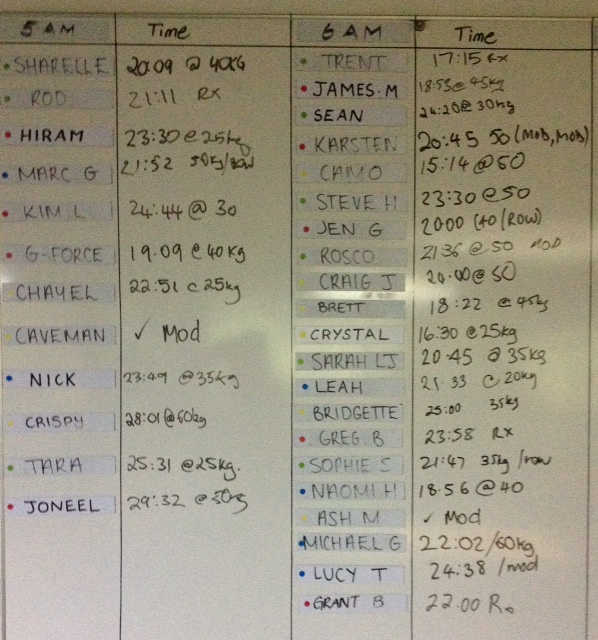 5 AM Time
SHARELLE 20:09 @ 40KG
ROD 21:11 RX
HIRAM 23:30 @ 25kg
MARC G 21:52 50kg/row
KIM L 24:44 @ 30
G-FORCE 19.09 @ 40kg
CHAYEL 22:51 @ 25kg
CAVEMAN ✓ Mod
NICK 23:49 @ 35kg
CRISPY 28:01 @ 60kg
TARA 25:31 @ 25kg.
JONEEL 29:32 @
6 AM Time
TRENT 17:15 RX
JAMES.M 18:53 @ 45kg
SEAN 24:20 @ 30kg
KARSTEN 20:45 50 (MOD, MOD)
CAMO 15:14 @ 50
STEVE H 23:30 @ 50
JEN G 20:00 (40/ROW)
ROSCO 21:36 @ 50 MOD
CRAIG J @ 50
BRETT 18:22 @ 45kg
CRYSTAL 16:30 @ 25kg
SARAH LJ 20:45 @ 35kg
LEAH 21:33 @ 20kg
BRIDGETTE 25:00 35kg
GREG. B 23:58 RX
SOPHIE S 21:47 35kg/row
NAOMI H 18:56 @ 40
ASH M ✓ Mod
MICHAEL G 22:02/60kg
LUCY T 24:38 /mod
GRANT B 22.00